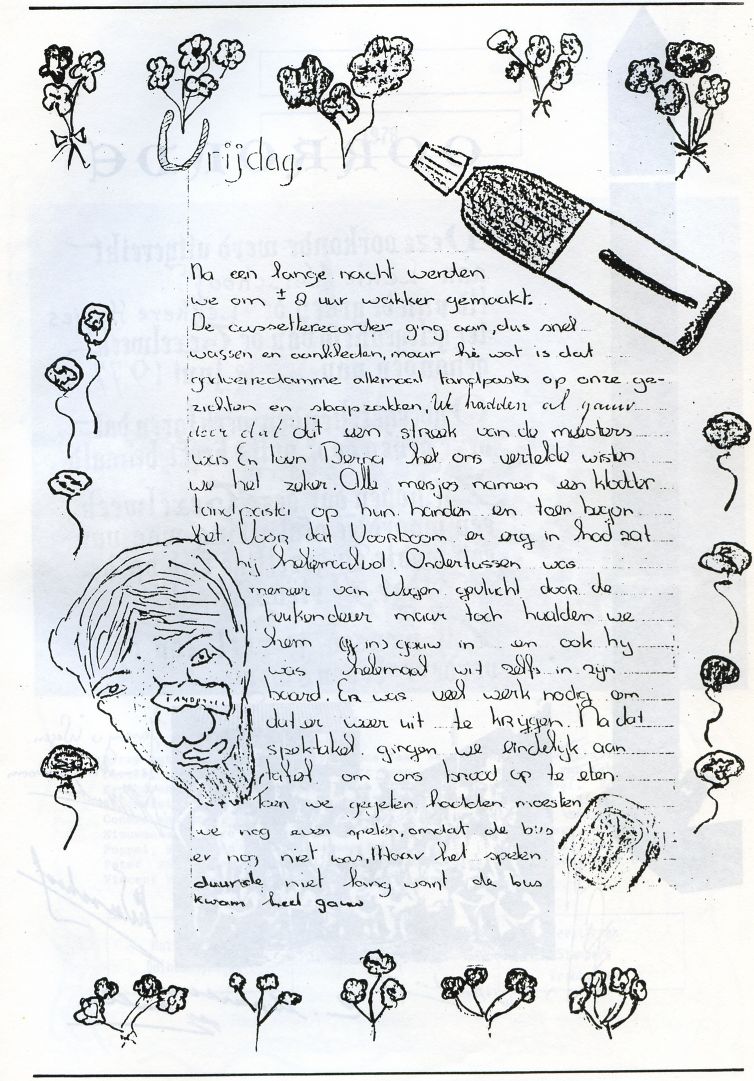 Vrijdag.
Na een lange nacht werden
we om ± 8 uur wakker gemaakt.
De cassetterecorder ging aan, dus snel
wassen en aankleden, maar hè wat is dat
allemaal tandpasta op onze ge-
zichten en slaapzakken, We hadden al gauw
door dat dit een streek van de meesters
was En toen Berja het ons vertelde wisten
we het zeker. Alle meisjes namen een klodder
tandpasta op hun handen en toen begon
het. Voor dat Voorboom er erg in had zat
hij helemaal vol. Ondertussen was
meneer van Wegen gevlucht door de
keukendeur maar toch haalden we
hem gauw in en ook hij
was helemaal wit zelfs in zijn
baard. Er was veel werk nodig om
dat er weer uit te krijgen. Na dat
spektakel gingen we eindelijk aan
tafel, om ons brood op te eten.
toen we gegeten hadden moesten
we nog even spelen, omdat de bus
er nog niet was, Maar het spelen
duurde niet lang want de bus
kwam heel gauw